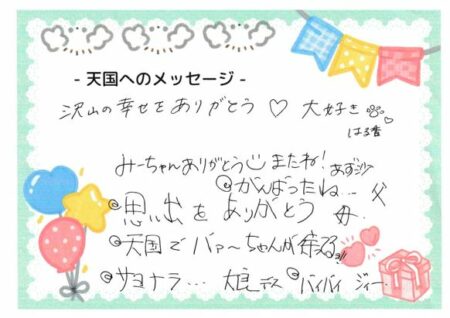 - 天国へのメッセージ -
沢山の幸せをありがとう♡ 大好き
はる香
みーちゃんありがとう またね! あず沙
◎がんばったね… 父
◎思い出をありがとう 母.
◎天国でバァ〜ちゃんが待ってるヨ!!
◎サヨナラ… ◎バイバイ ジィー